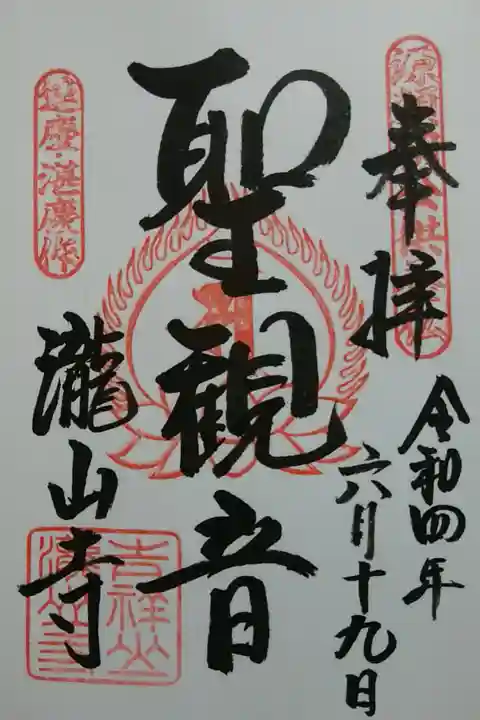 奉拝
令和四年
六月十九日
聖観音
運慶・湛慶作
瀧山寺
吉祥山
瀧山寺